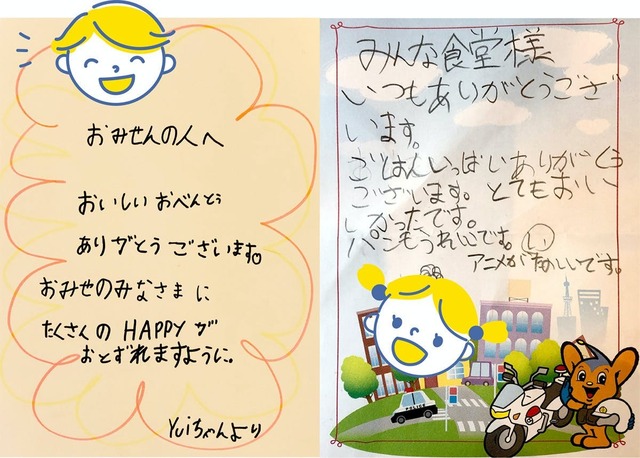 おみせんの人へ
おいしい おべんとう
ありがとう ございます。
おみせのみなさま に
たくさんの HAPPY が
おとずれますように。
Yuiちゃんより
みんな食堂様
いつもありがとうござ
います。
ごはんいっぱいありがとう
ございます。とてもおい
しかったです。
パンもうれしいです。
い
アニメが
です。
POLICE